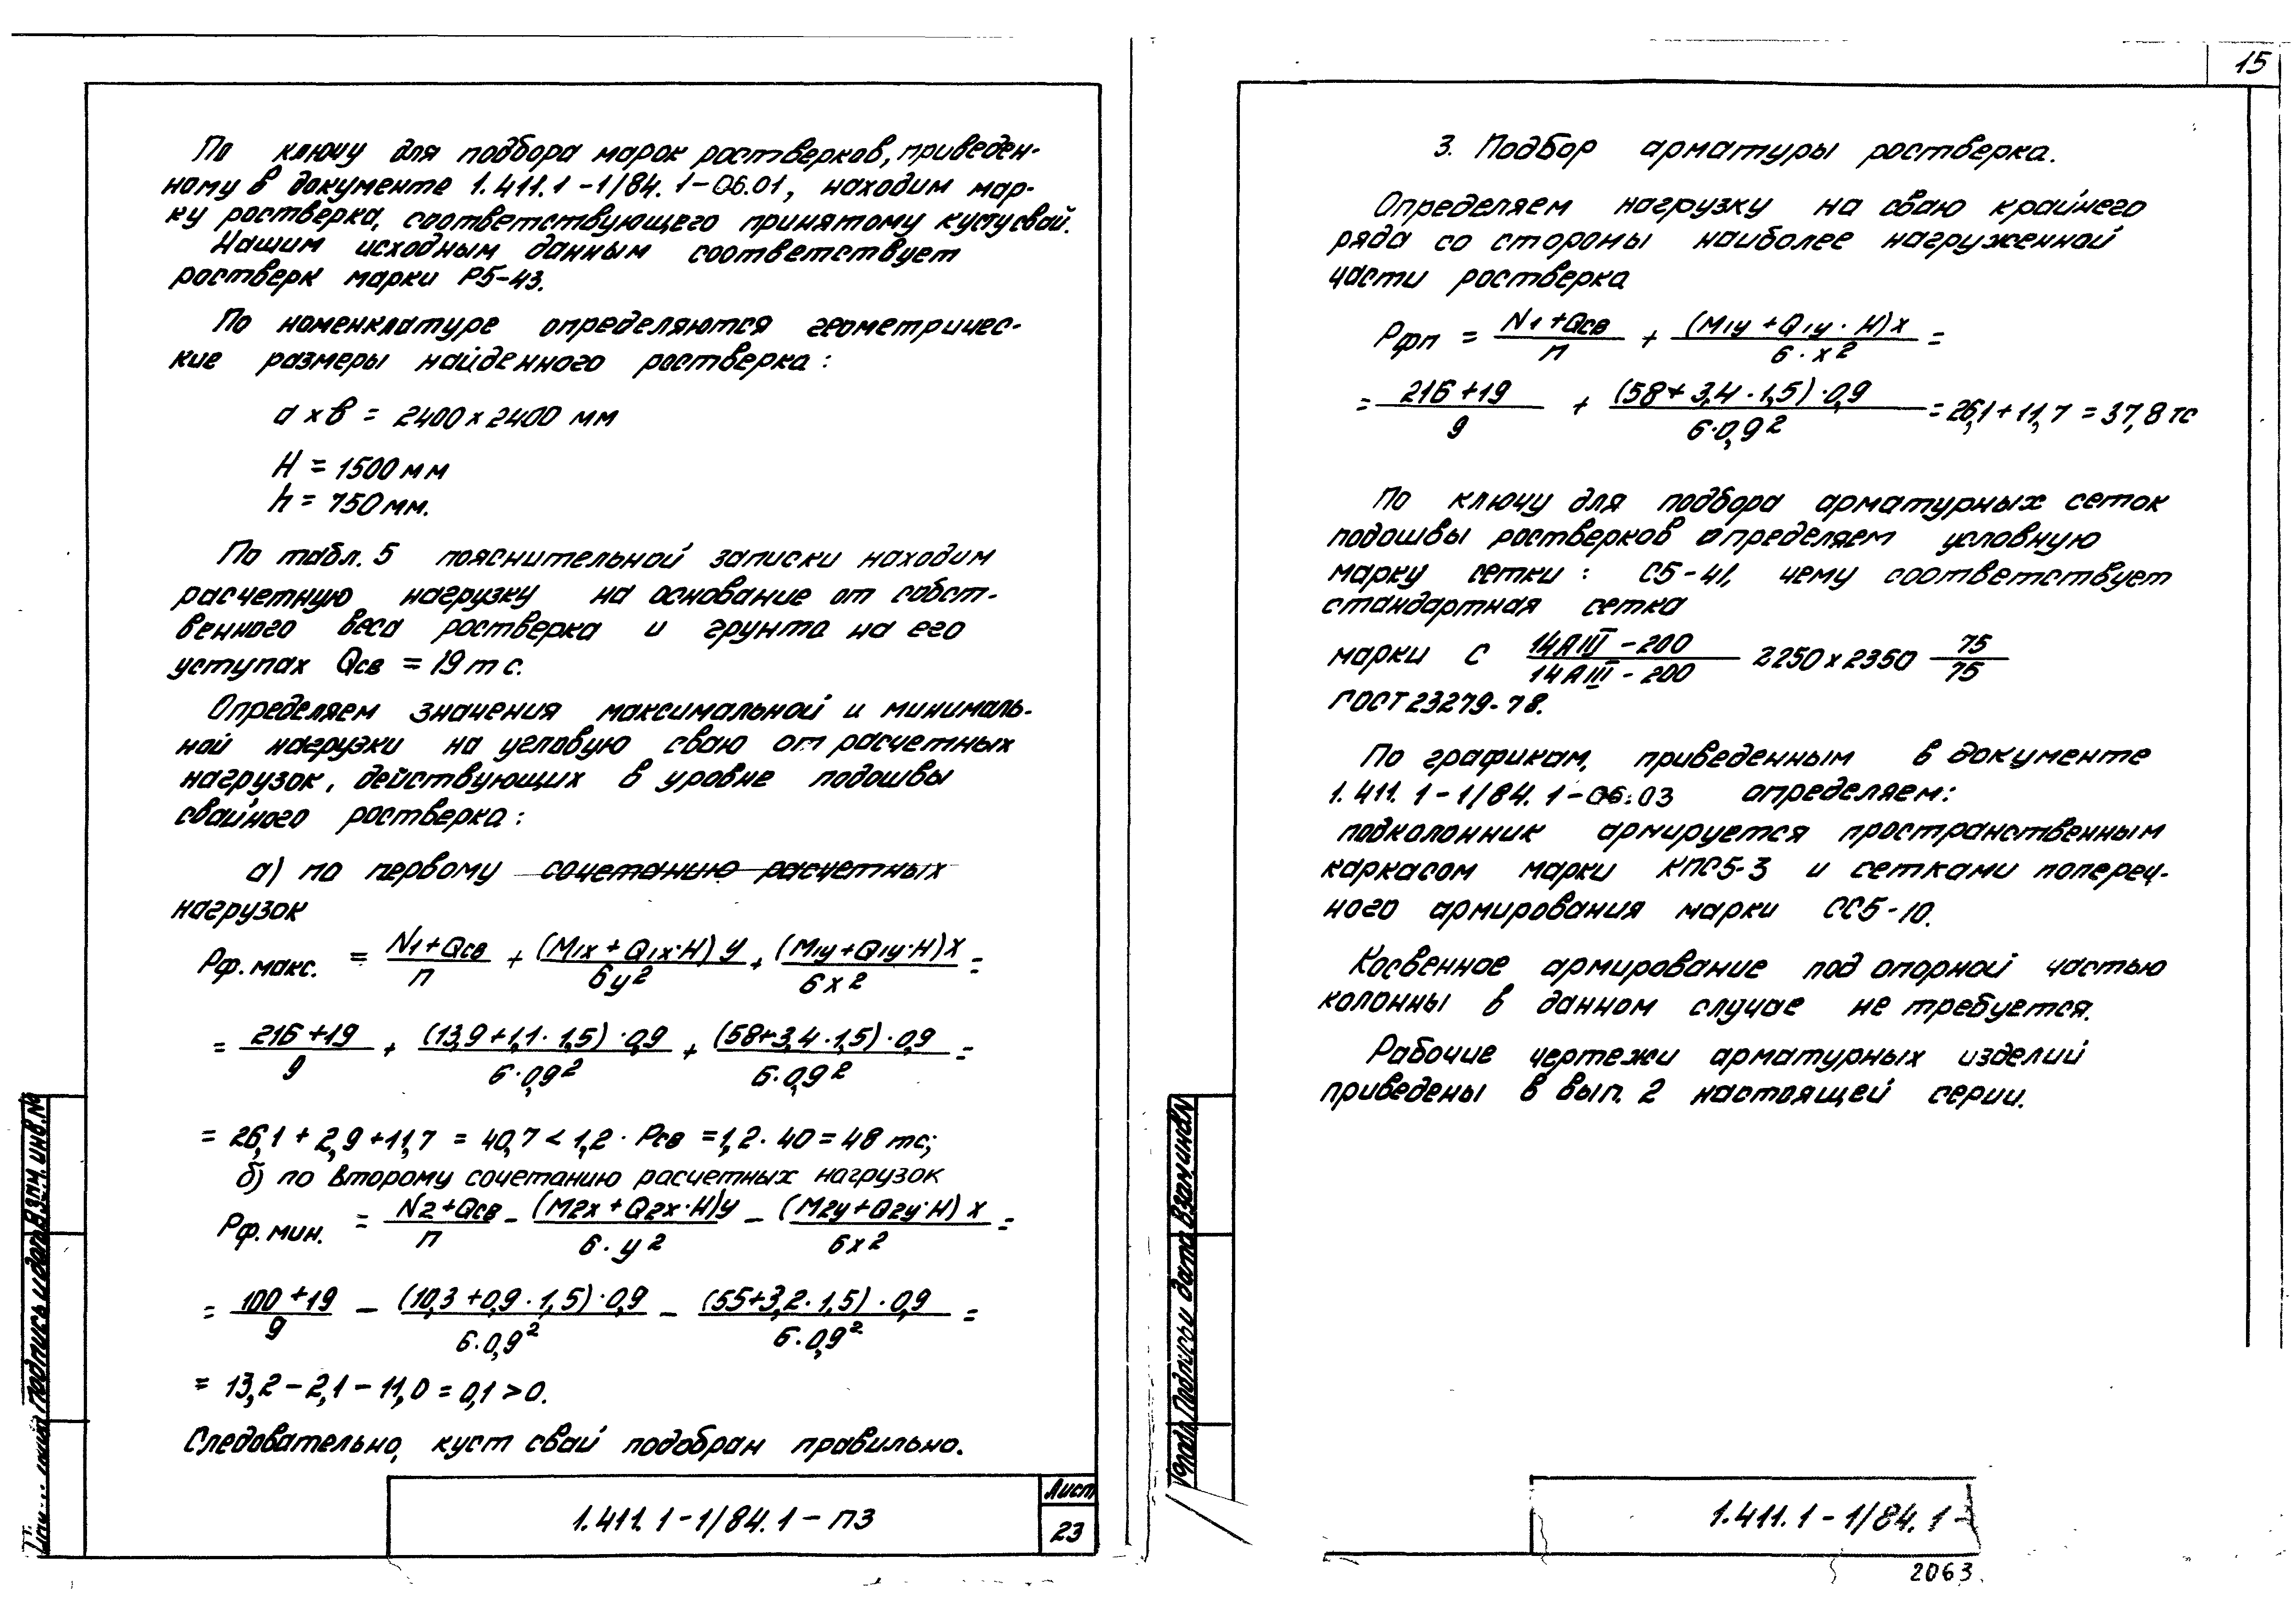 По ключу для подбора марок ростверков, приведен-
ному в документе 1.411.1-1/84.1-06.01, находим мар-
ку ростверка, соответствующего принятому кусту свай.
Нашим исходным данным соответствует
ростверк марки Р5-43.
По номенклатуре определяются геометричес-
кие размеры найденного ростверка:
a x в = 2400 x 2400 мм
H = 1500 мм
h = 750 мм.
По табл. 5 пояснительной записки находим
расчетную нагрузку на основание от собст-
венного веса ростверка и грунта на его
уступах Qсв = 19 тс.
Определяем значения максимальной и минималь-
ной нагрузки на угловую сваю от расчетных
нагрузок, действующих в уровне подошвы
свайного ростверка:
а) по первому сочетанию расчетных
нагрузок
Pф.макс. = (N1+Qсв)/п + (M1x + Q1x·H) y/6y² + (M1y+Q1y·H)x/6x² =
= (216+19)/9 + (13,9+1,1·1,5)·0,9/6·0,9² + (58+3,4·1,5)·0,9/6·0,9² =
= 26,1 + 2,9 + 11,7 = 40,7 < 1,2 · Pсв = 1,2 · 40 = 48 тс;
б) по второму сочетанию расчетных нагрузок
Pф.мин. = (N2+Qсв)/п - (M2x + Q2x·H)y/6·y² - (M2y+Q2y·H)x/6x² =
= (100+19)/9 - (10,3+0,9·1,5)·0,9/6·0,9² - (55+3,2·1,5)·0,9/6·0,9² =
= 13,2 - 2,1 - 11,0 = 0,1 > 0.
Следовательно, куст свай подобран правильно.
1.411.1-1/84.1-ПЗ
Лист
23
Подпись и дата
Взам.инв.№
15
3. Подбор арматуры ростверка.
Определяем нагрузку на сваю крайнего
ряда со стороны наиболее нагруженной
части ростверка
Pфп = (N1+Qсв)/п + (M1y + Q1y·H)x/6·x² =
= (216+19)/9 + (58+3,4·1,5)·0,9/6·0,9² = 26,1 + 11,7 = 37,8 тс
По ключу для подбора арматурных сеток
подошвы ростверков определяем условную
марку сетки: С5-41, чему соответствует
стандартная сетка
марки С 14АIII-200/14АIII-200 2250 x 2350 75/75
ГОСТ 23279-78.
По графикам, приведенным в документе
1.411.1-1/84.1-06.03 определяем:
подколонник армируется пространственным
каркасом марки КПС5-3 и сетками попереч-
ного армирования марки СС5-10.
Косвенное армирование под опорной частью
колонны в данном случае не требуется.
Рабочие чертежи арматурных изделий
приведены в вып. 2 настоящей серии.
Подпись и дата
Взам.инв.№
1.411.1-1/84.1-
2063